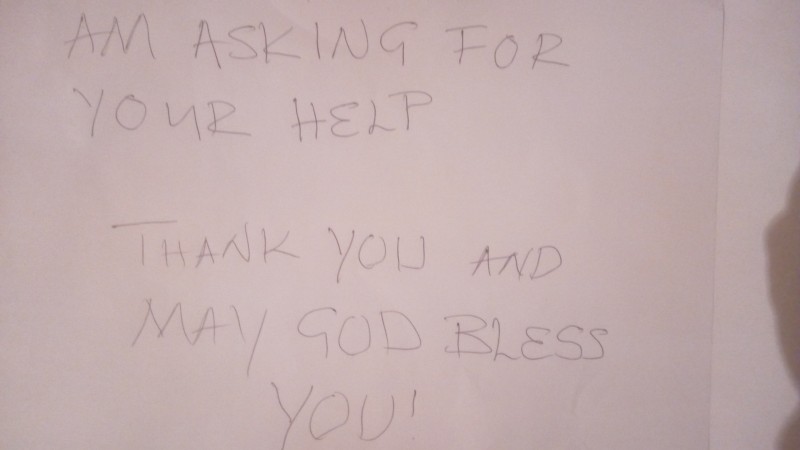 AM ASKING FOR
YOUR HELP
THANK YOU AND
MAY GOD BLESS
YOU!